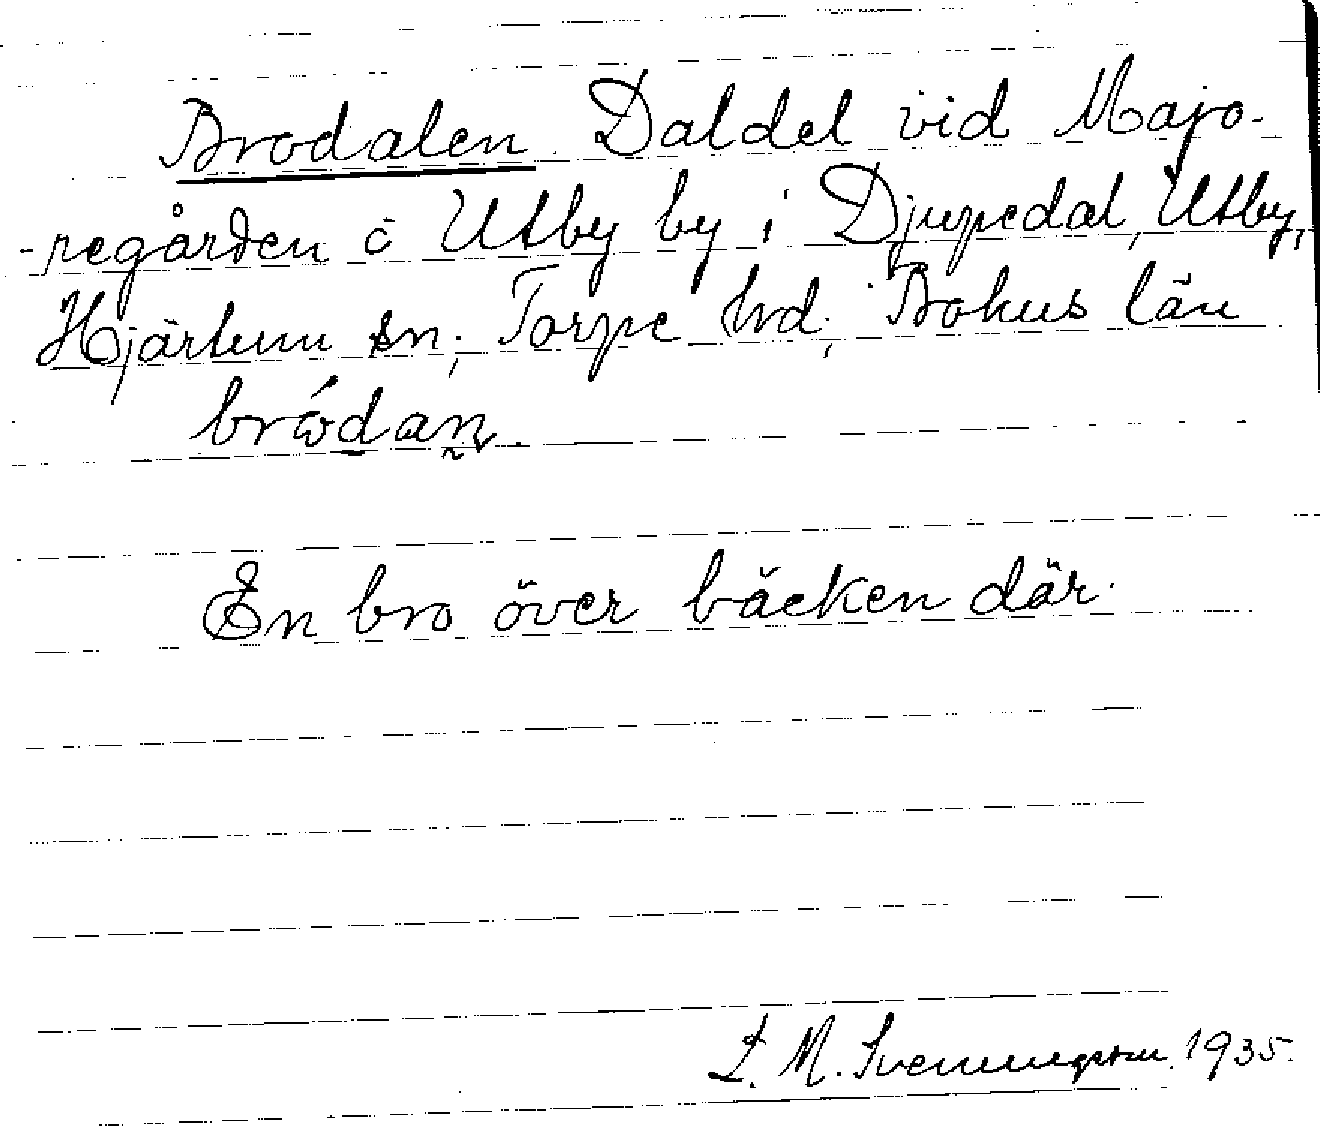 Brodalen Daldel vid Majo-
-regården i Utby by i Djupedal, Utby,
Hjärtum sn; Torpe hrd; Bohus län
bró̤dan̥.
En bro över bäcken där.
L. M. Svenungsson 1935.